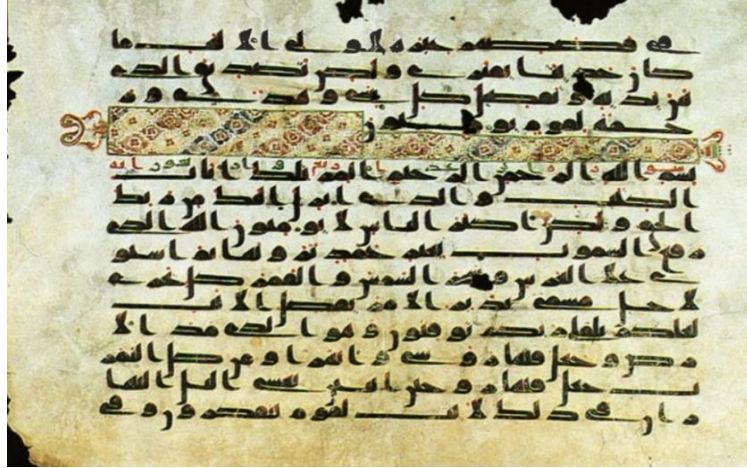 في قصصهم عبرة لاولي الالبب ما
كان حديثا يفترى ولكن تصديق الذي
بين يديه وتفصيل كل شي وهدى و
رحمة لقوم يومنون
بسم الله الرحمن الرحيم المر تلك ايت
الكتب والذي انزل اليك من ربك
الحق ولكن اكثر الناس لا يومنون الله الذي
رفع السموت بغير عمد ترونها ثم استوى
على العرش وسخر الشمس والقمر كل يجري
لاجل مسمى يدبر الامر يفصل الايت
لعلكم بلقا ربكم توقنون وهو الذي مد الا
رض وجعل فيها روسي وانهرا ومن كل الثمر
ت جعل فيها زوجين اثنين يغشي اليل النها
ر ان في ذلك لايت لقوم يتفكرون وفي